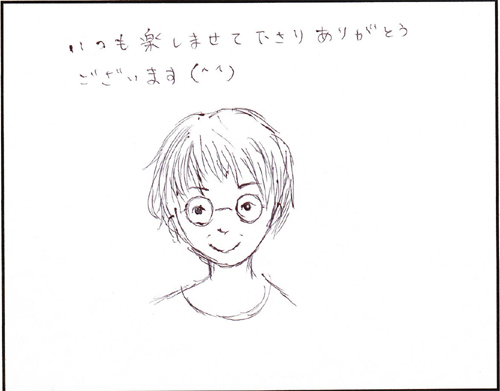 いつも楽しませて下さりありがとう
ございます(^^)